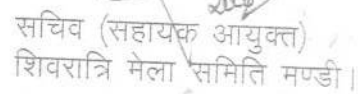 सचिव (सहायक आयुक्त)
शिवरात्रि मेला समिति मण्डी।